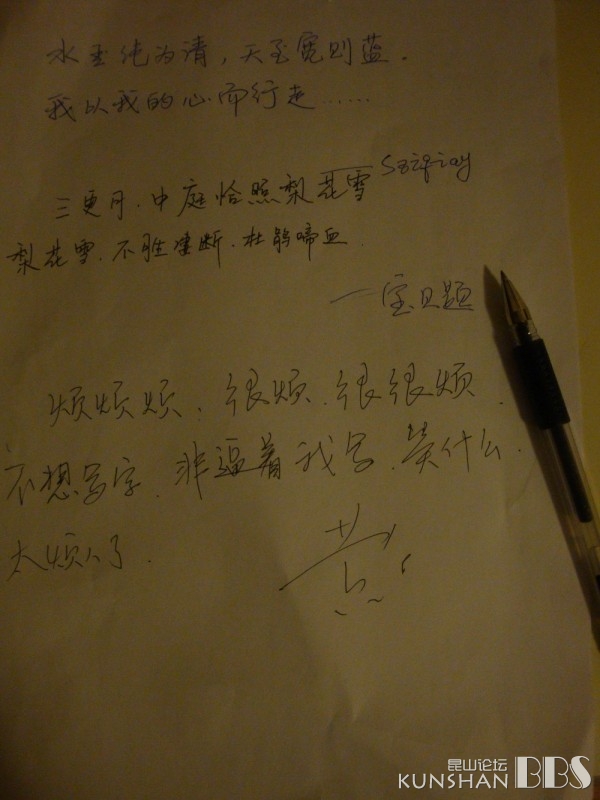 水至纯为清，天至宽则蓝.
我以我的心而行走……
Szifiay
三更月.中庭恰照梨花雪
梨花雪.不胜凄断.杜鹃啼血.
一宝贝题
烦烦烦、很烦、很很烦.
不想写字.非逼着我写.莫什么.
太烦人了.
昆山论坛
KUNSHAN BBS